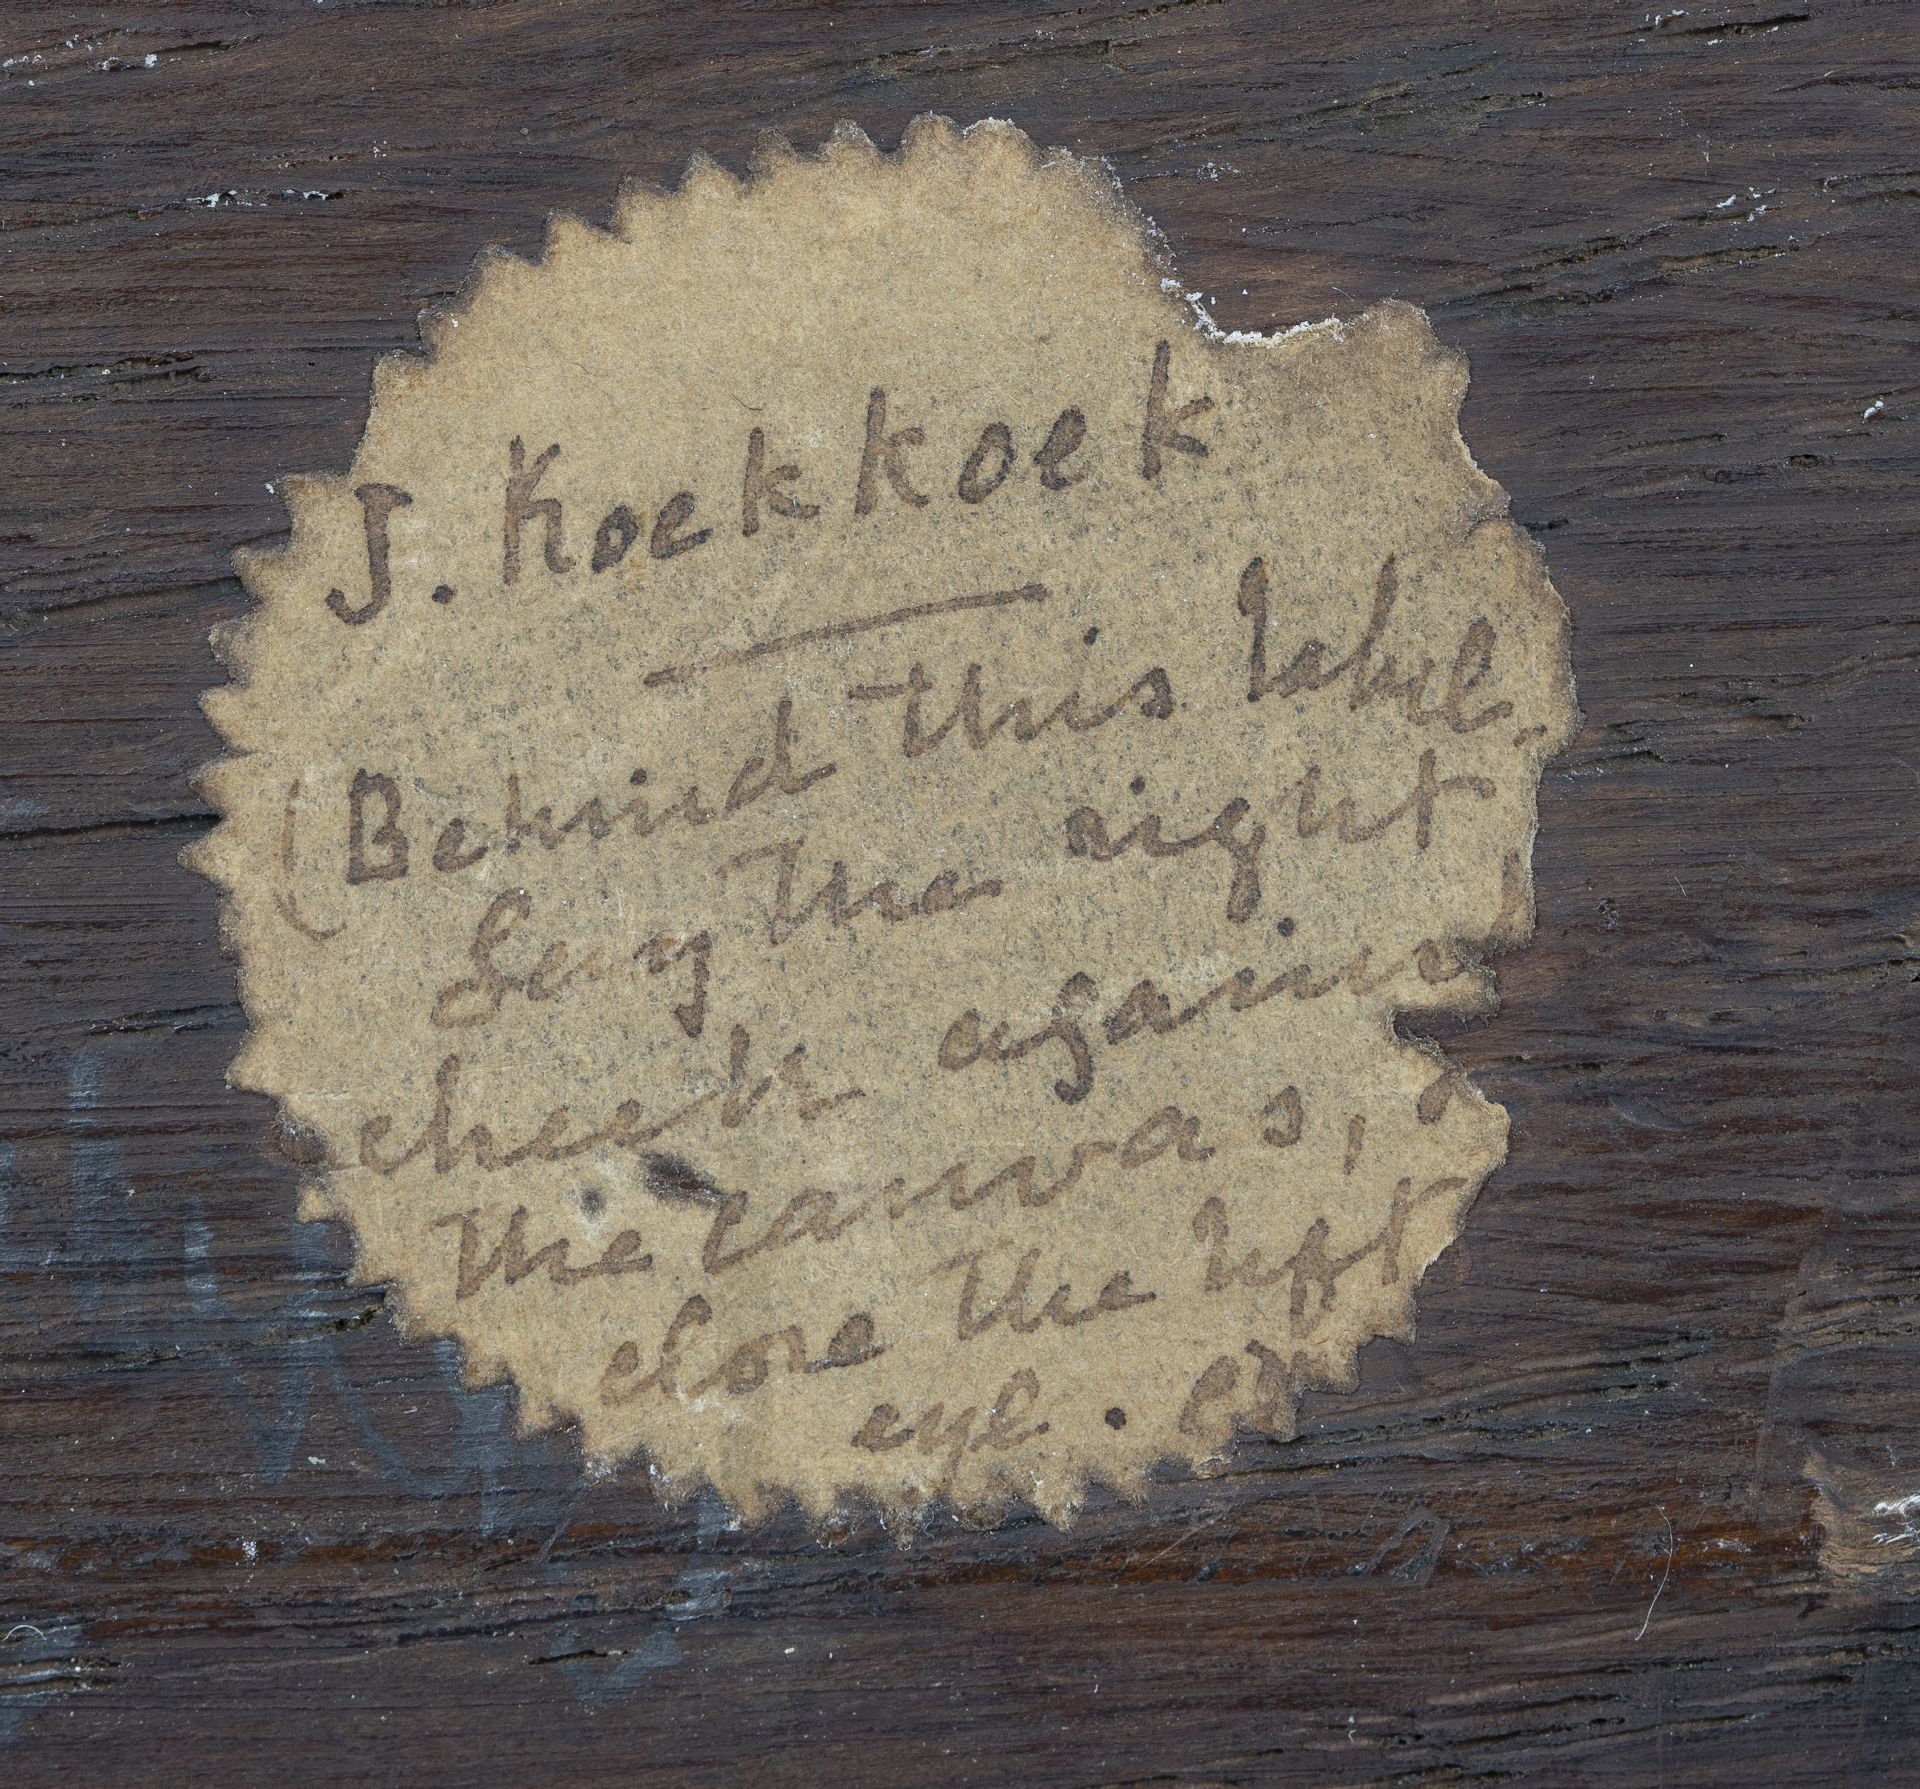 J. Koekkoek
(Behind this label.
lay the right
cheek against
the canvas,
close the left
eye.